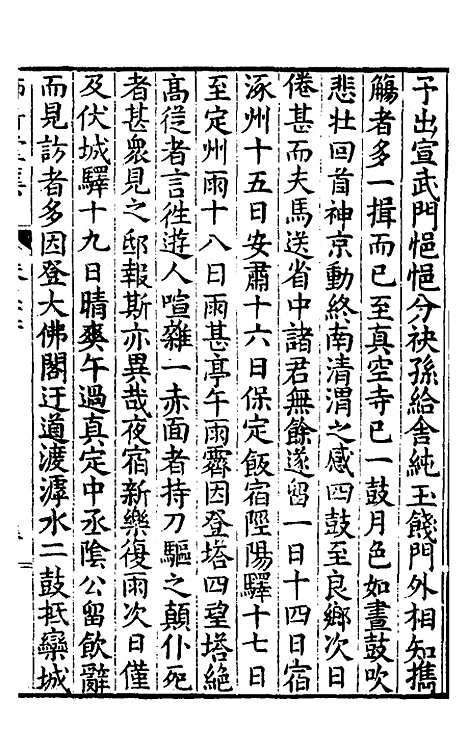 予出宣武門悒悒分袂孫給舍純玉餞門外相知攜
觴者多一揖而已至真空寺已一鼓月色如晝鼓吹
悲壯回首神京動終南清渭之感四鼓至良鄉次日
倦甚而夫馬送省中諸君無餘遂留一日十四日宿
涿州十五日安肅十六日保定飯宿陘陽驛十七日
至定州雨十八日雨甚亭午雨霽因登塔四望塔絕
高從者言徃遊人喧雜一赤面者持刀驅之顛仆死
者甚衆見之邸報斯亦異哉夜宿新樂復雨次日僅
及伏城驛十九日晴爽午過真定中丞陰公留飲辭
而見訪者多因登大佛閣迂道渡滹水二鼓抵欒城